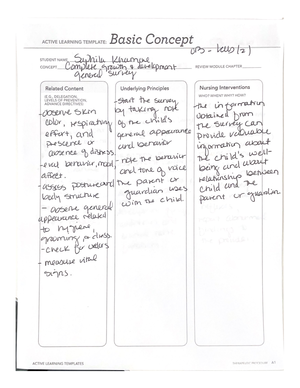 ACTIVE LEARNING TEMPLATE: Basic Concept
STUDENT NAME
CONCEPT Complete growth & development
general survey
REVIEW MODULE CHAPTER
Related Content
(E.G., DELEGATION,
LEVELS OF PREVENTION,
ADVANCE DIRECTIVES)
-observe skin
color, respiratory
effort, and
presence or
absence of distress.
behavior, mood,
affect.
-assess posture and
body structure
- observe general
appearance related
to hygiene,
grooming,
-check for
- measure vital
signs.
Underlying Principles
-start the survey
by taking note
of the child's
general appearance
and behavior
- note the behavior
and tone of voice
the parent or
guardian uses
with the child.
Nursing Interventions
WHO? WHEN? WHY? HOW?
-the information
obtained from
the survey can
provide valuable
information about
the child's well-
being and about
relationships between
child and the
parent or guardian.
ACTIVE LEARNING TEMPLATES